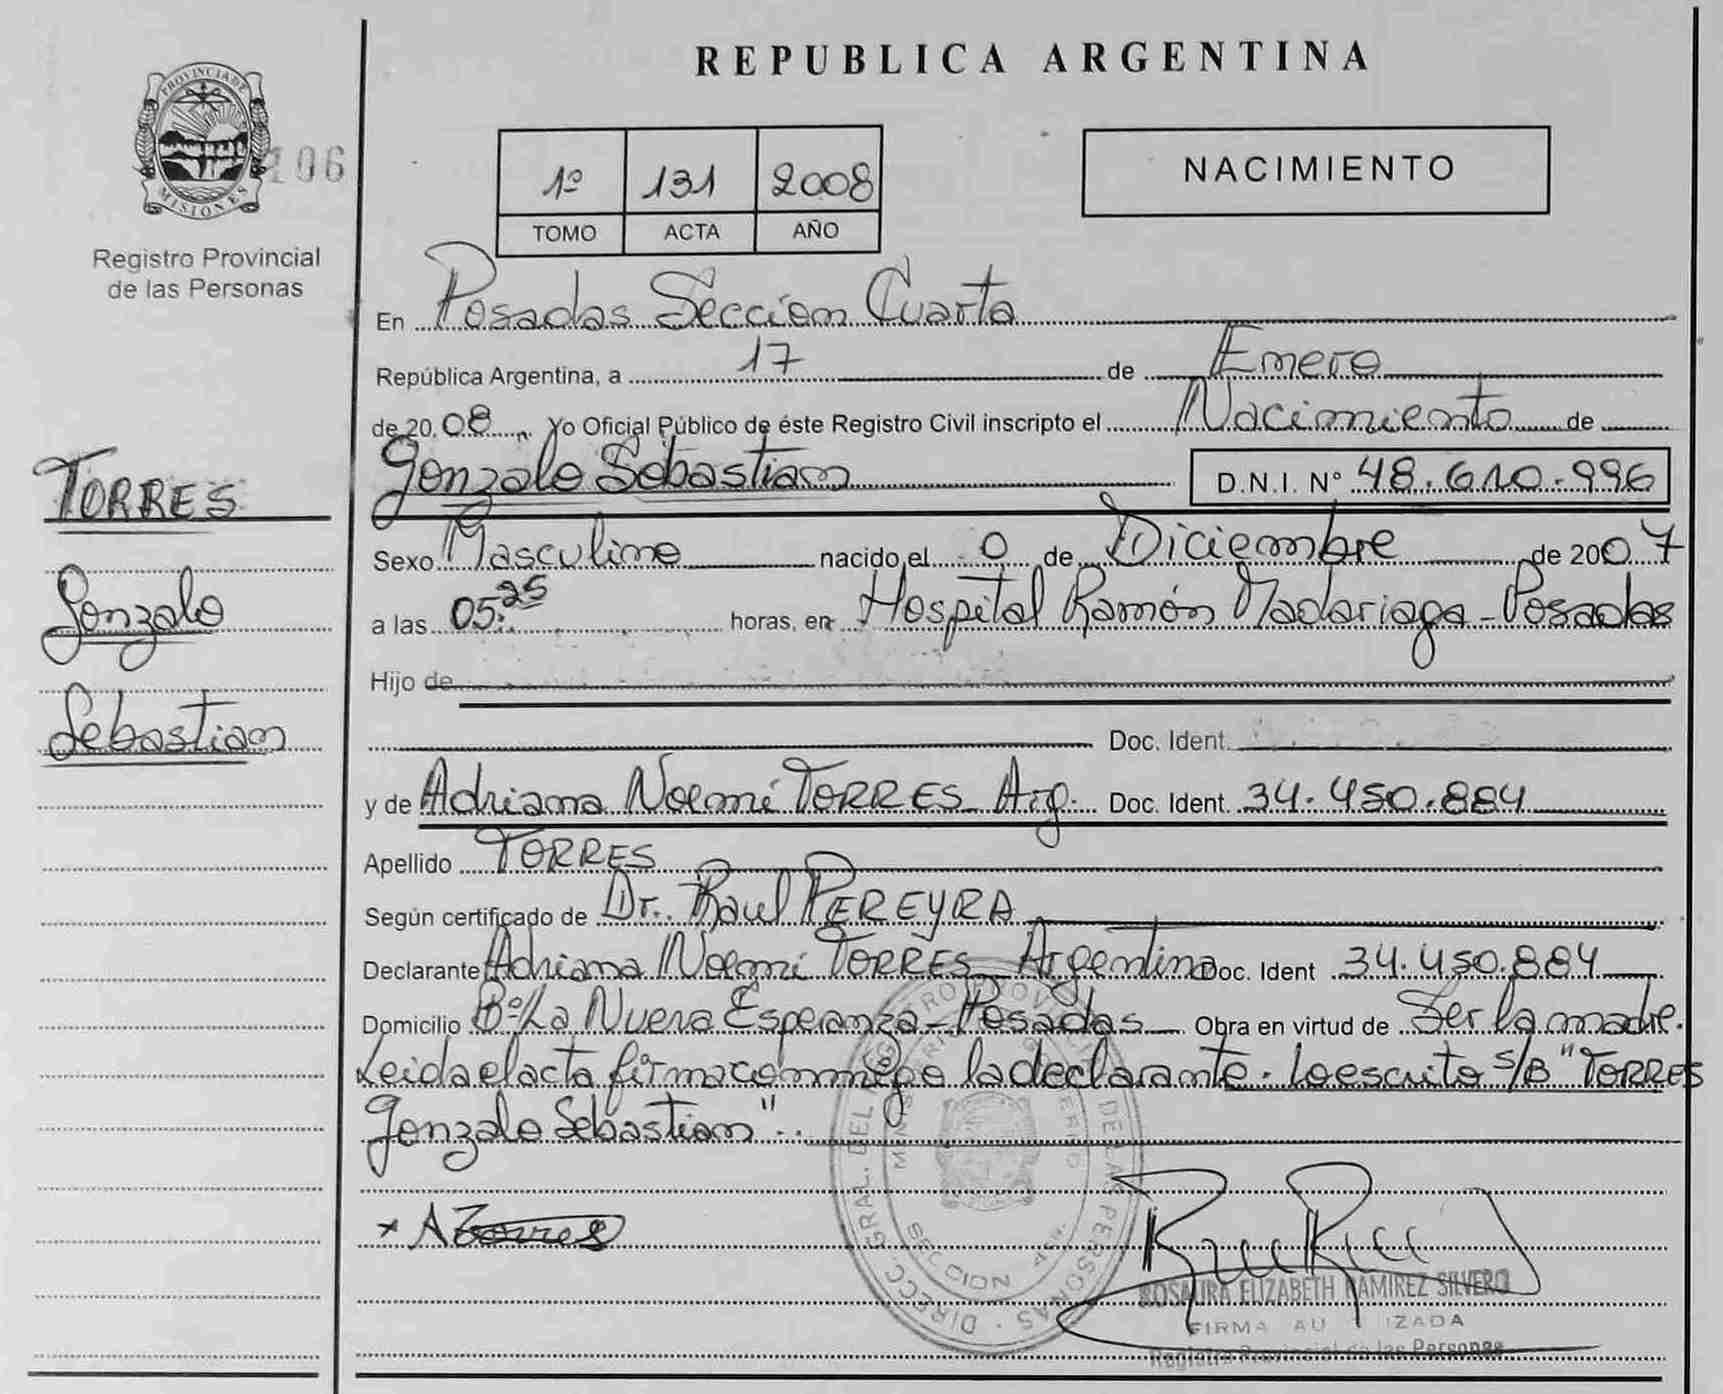 REPUBLICA ARGENTINA
PROVINCIA DE
MISIONES
106
Registro Provincial
de las Personas
1º 131 2008
TOMO ACTA AÑO
NACIMIENTO
En Posadas Sección Cuarta
República Argentina, a 17 de Enero
de 2008, Yo Oficial Público de éste Registro Civil inscripto el Nacimiento de
Gonzalo Sebastian D.N.I. Nº 48.610.996
TORRES
Gonzalo
Sebastian
Sexo Masculino nacido el 0 de Diciembre de 2007
a las 05:25 horas, en Hospital Ramón Madariaga - Posadas
Hijo de
Doc. Ident.
y de Adriana Noemí TORRES Arg. Doc. Ident. 34.450.884
Apellido TORRES
Según certificado de Dr. Raul PEREYRA
Declarante Adriana Noemí TORRES Argentina Doc. Ident 34.450.884
Domicilio Bº La Nueva Esperanza - Posadas Obra en virtud de Ser la madre.
Leida el acta firma conmigo la declarante. Lo escrito s/B "TORRES
Gonzalo Sebastian".
x A Torres
DIRECC. GRAL. DEL REGISTRO PROVINCIAL DE LAS PERSONAS
SECCION 4ta
ROSAURA ELIZABETH RAMIREZ SILVERO
FIRMA AU IZADA
Registro Provincial de las Personas